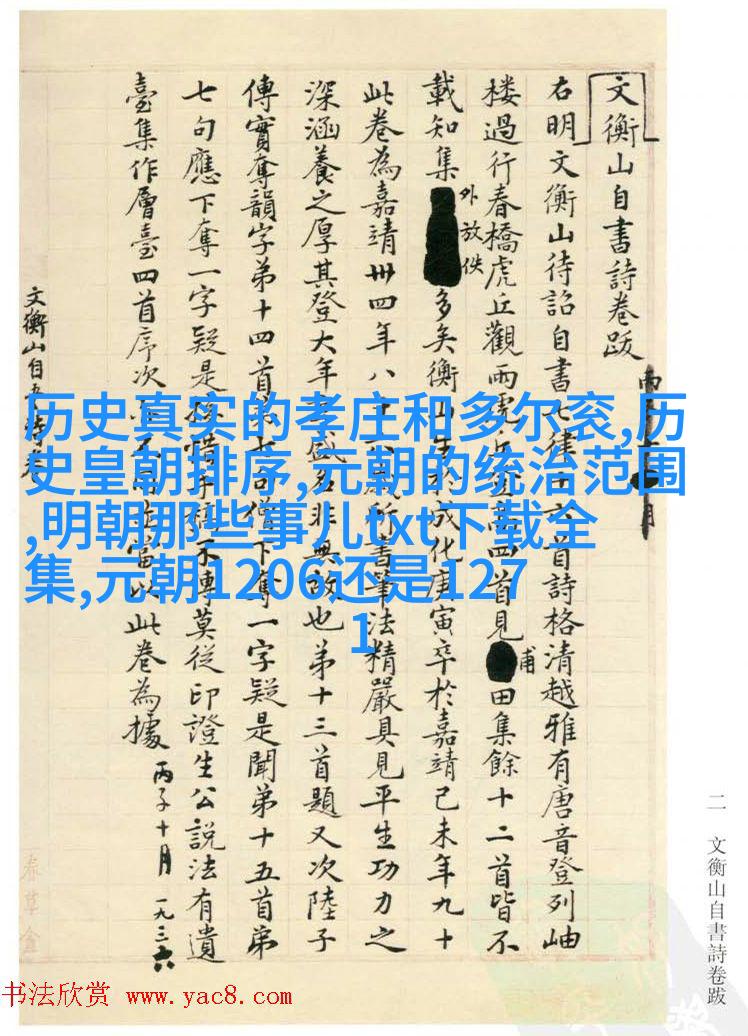 文衡山自書詩卷跋
右明文衡山待詔自書七律十
首詩格清越雅有唐音登列岫
楼過行春橋虎丘觀雨
四首見
甫田集餘十二首皆不
載知集外放佚多矣衡山
成化庚寅卒於嘉靖己未年九十
此卷為嘉靖卅四年八十
所書筆法精嚴具見平生功力之
深涵養之厚其登大年
盛名非無故也弟十三首題又次陸子
傳實奪韻字弟十四首弟七句僧下奪一字疑是聞弟十五首弟
七句應下奪一字疑是
惜手
不博莫従印證生公説法有遺
臺集作層臺四首序次
當以此卷為據
丙子十月 一九三六
文衡山自書詩卷
历史真实的孝庄和多尔衮,历
史皇朝排序,元朝的统治范围
,明朝那些事儿txt下载全
集,元朝1206还是127
1
二 文衡山自書詩卷跋
书法欣赏 www.yac8.com